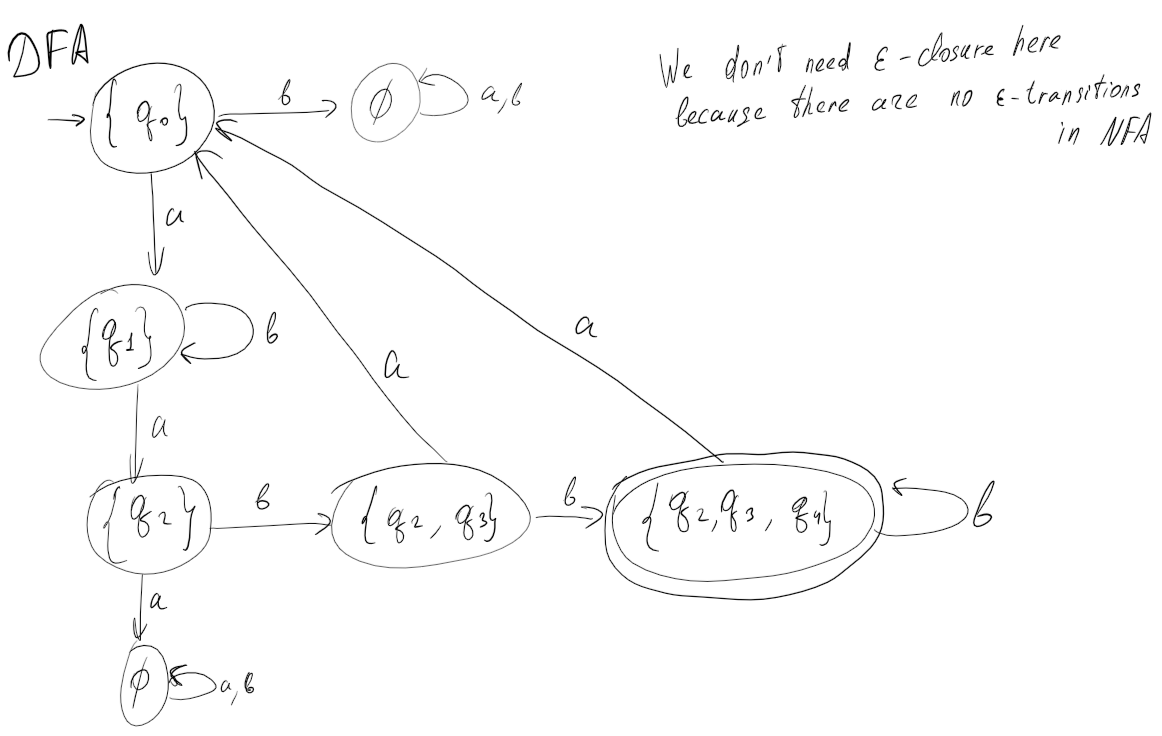 DFA
We don't need ε-closure here
because there are no ε-transitions
in NFA
{q0}
b
ϕ
a,b
a
{q1}
b
a
a
a
{q2}
b
{q2, q3}
b
{q2,q3, q4}
b
a
ϕ
a,b